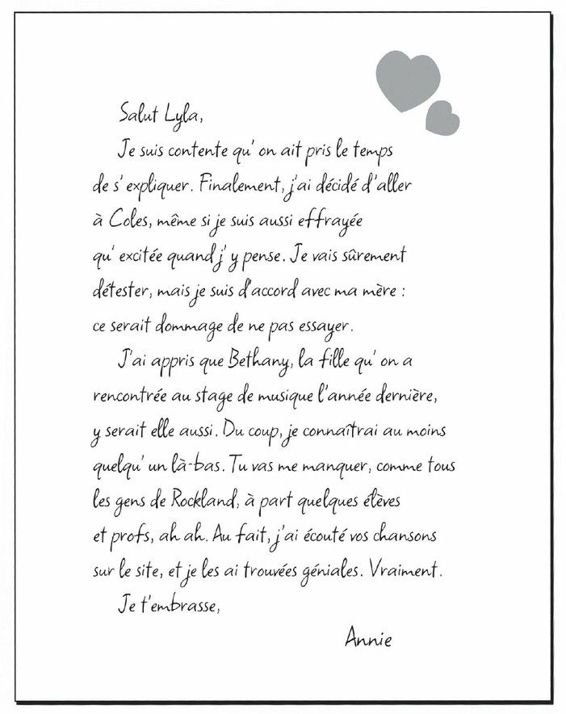 Salut Lyla,
Je suis contente qu'on ait pris le temps
de s'expliquer. Finalement, j'ai décidé d'aller
à Coles, même si je suis aussi effrayée
qu'excitée quand j'y pense. Je vais sûrement
détester, mais je suis d'accord avec ma mère :
ce serait dommage de ne pas essayer.
J'ai appris que Bethany, la fille qu'on a
rencontrée au stage de musique l'année dernière,
y serait elle aussi. Du coup, je connaîtrai au moins
quelqu'un là-bas. Tu vas me manquer, comme tous
les gens de Rockland, à part quelques élèves
et profs, ah ah. Au fait, j'ai écouté vos chansons
sur le site, et je les ai trouvées géniales. Vraiment.
Je t'embrasse,
Annie